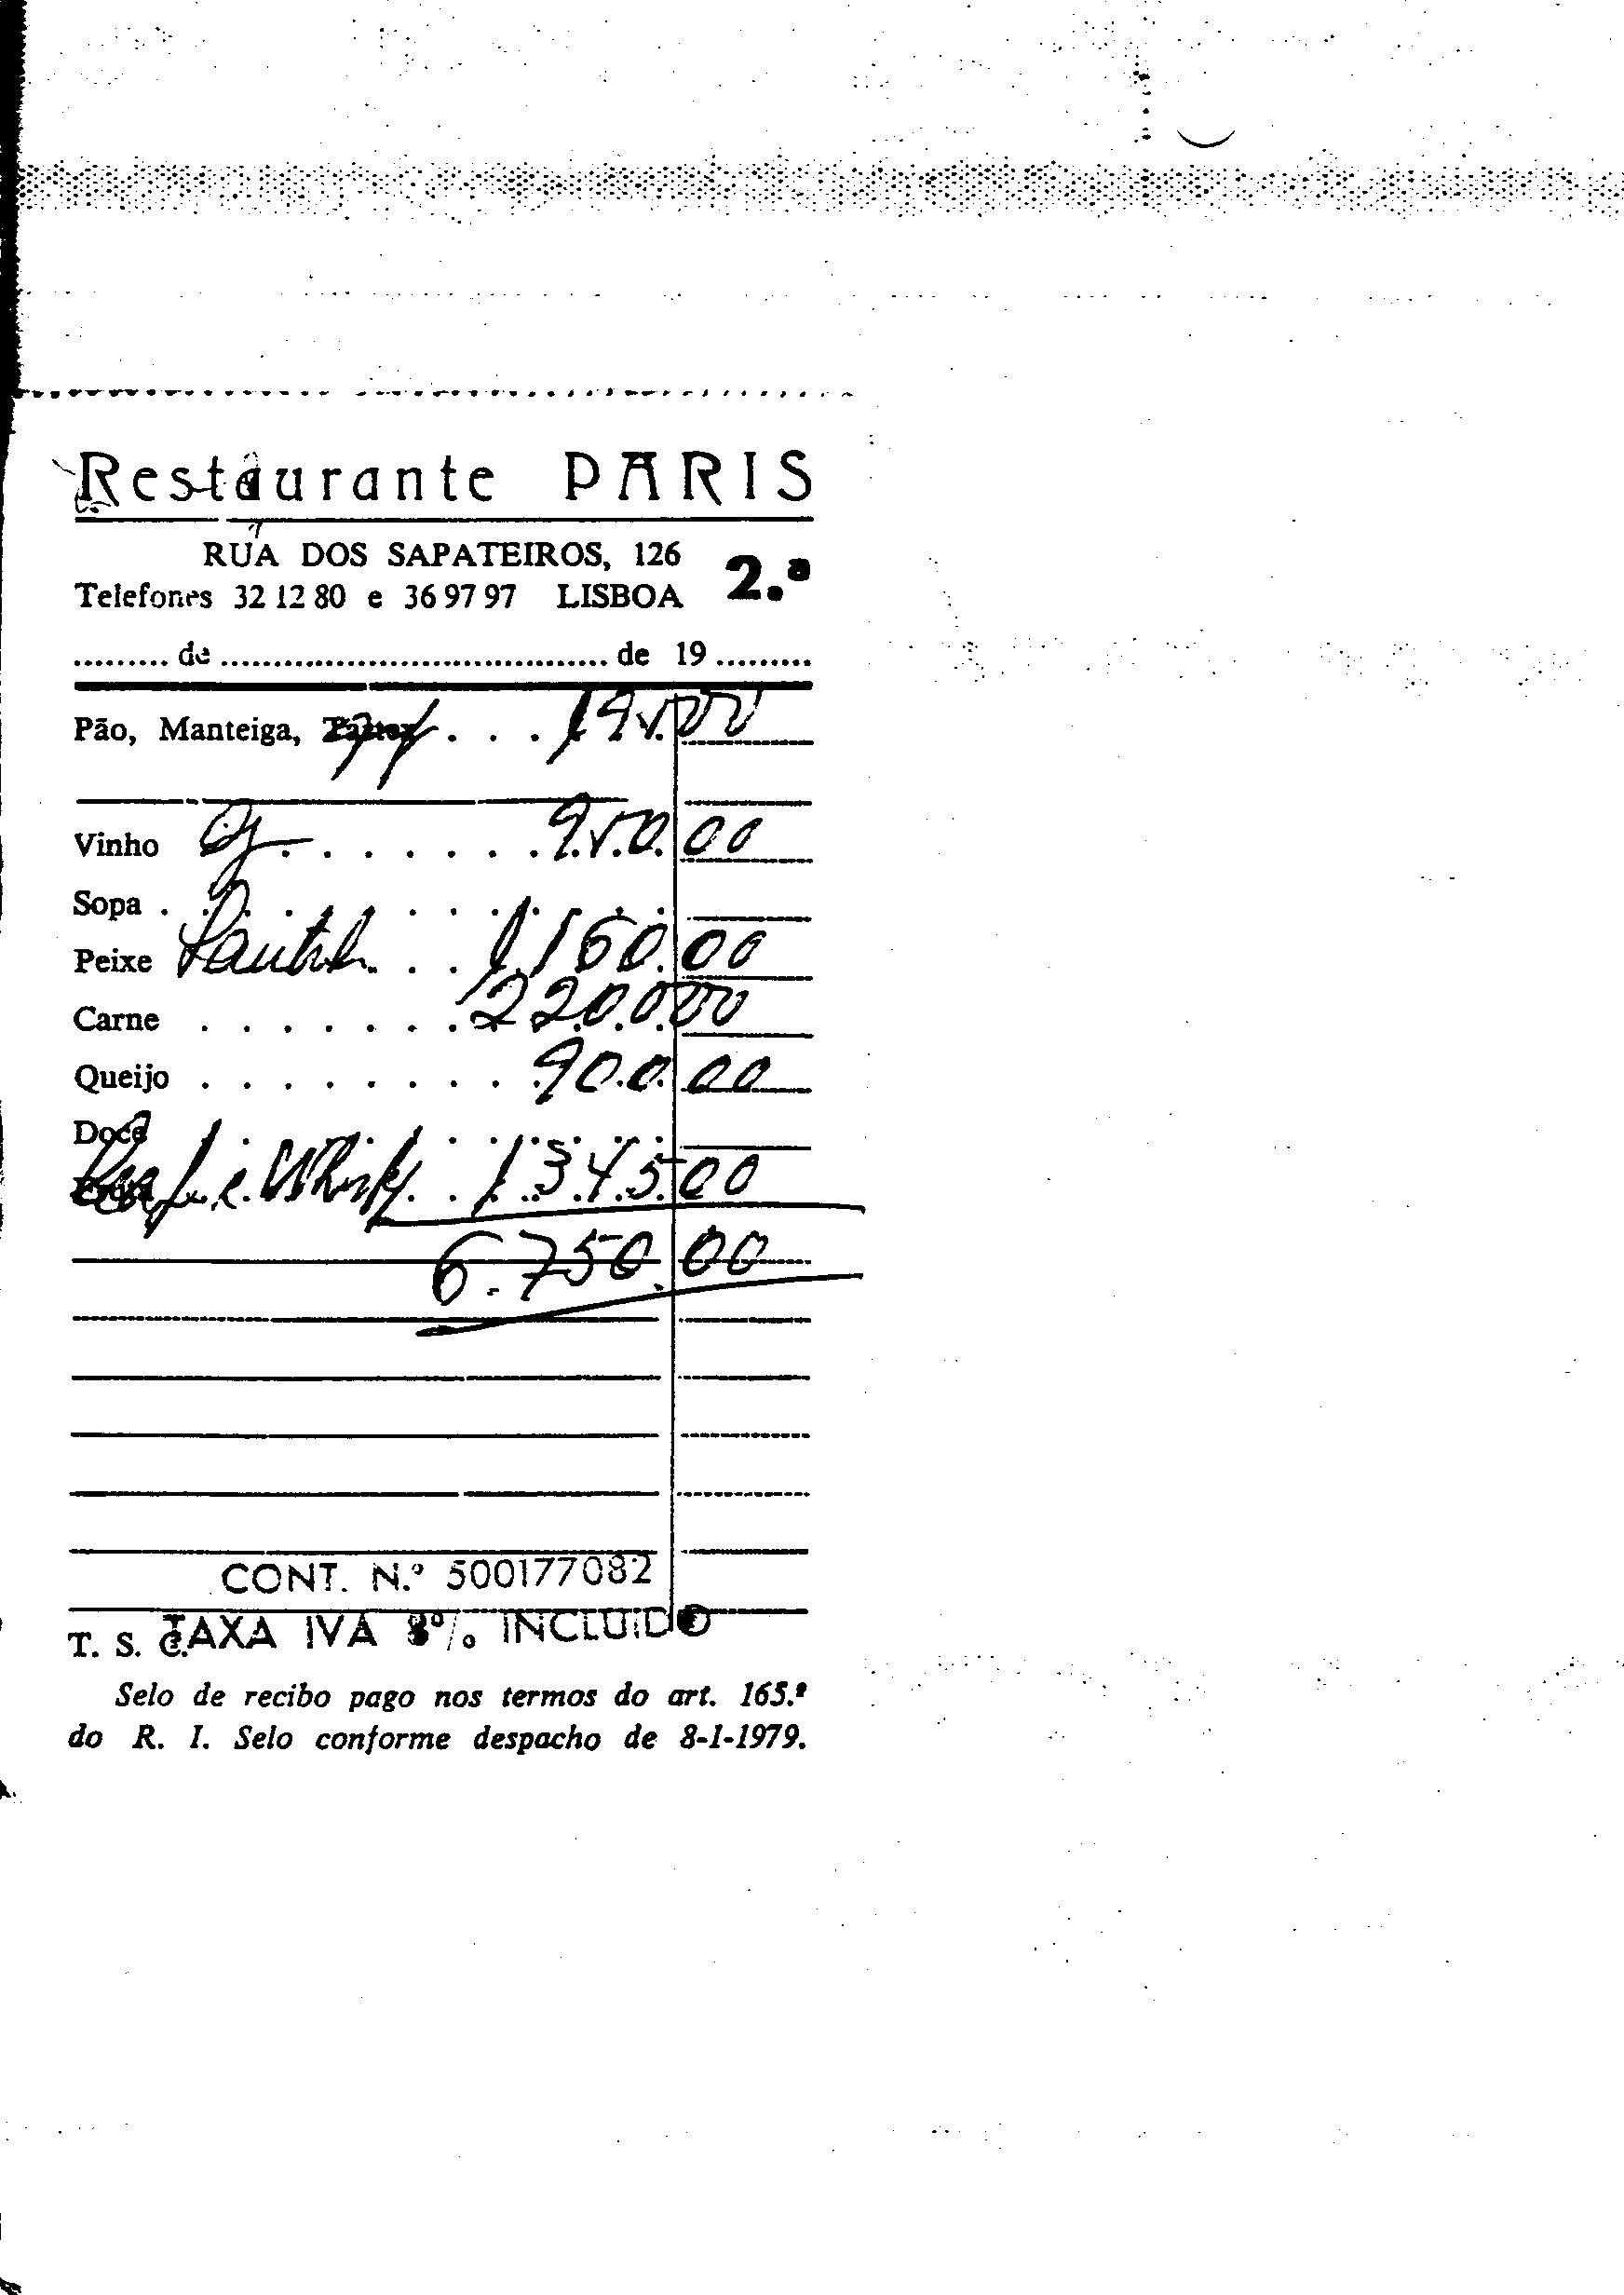 Restaurante PARIS
RUA DOS SAPATEIROS, 126
Telefones 32 12 80 e 36 97 97 LISBOA 2.ª
......... de ..................................... de 19 .........
Pão, Manteiga, . . . 195.00
Vinho . . . . . . . 950.00
Sopa . . . . . . . . . . .
Peixe . . . 1.160.00
Carne . . . . . . . 2200.00
Queijo . . . . . . . . 900.00
Doce . . . . . . . . .
e Whisky . . 1.345.00
6.750.00
CONT. N.º 500177082
T. S. C. TAXA IVA 8% INCLUIDO
Selo de recibo pago nos termos do art. 165.º
do R. I. Selo conforme despacho de 8-1-1979.